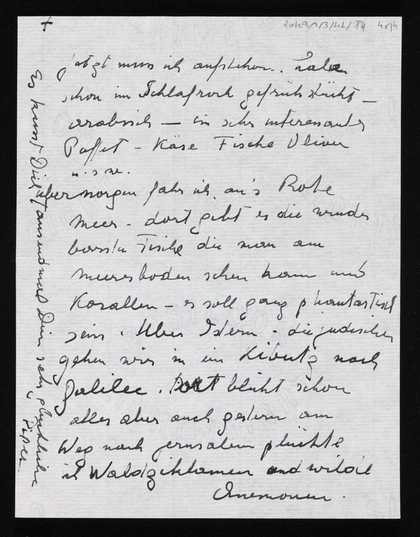 jetzt muss ich aufstehen. Habe
schon im Schlafrock gefrühstückt –
arabisch – ein sehr interessantes
Buffet – Käse Fische Oliven
u.s.w.
übermorgen fahr ich an's Rote
Meer – dort gibt es die wunder
barsten Fische die man am
Meeresboden sehen kann und
Korallen – es soll ganz phantastisch
sein. Über Ostern – die jüdischen
gehen wir in ein Kibutz nach
Galilee. Dort blüht schon
alles aber auch gestern am
Weg nach Jerusalem pflückte
ich Waldzyklamen und wilde
Anemonen.
Es küsst Dich tausendmal Dein sehr glückliche